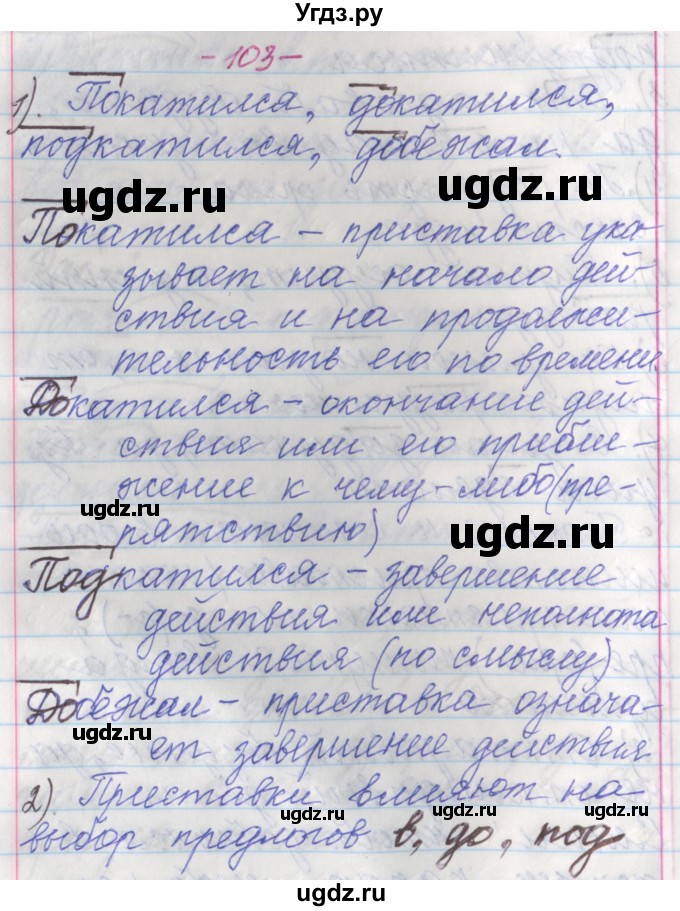 Угдз.ру
- 103 -
1). Покатился, докатился,
подкатился, добежал.
ugdz.ru ugdz.ru
Покатился – приставка ука-
зывает на начало дей-
ствия и на продолжи-
тельность его по времени.
Докатился – окончание дей-
ствия или его прибли-
жение к чему-либо (пре-
пятствию)
ugdz.ru ugdz.ru
Подкатился – завершение
действия или неполнота
действия (по смыслу)
Добежал – приставка означа-
ет завершение действия
ugdz.ru ugdz.ru
2) Приставки влияют на
выбор предлогов в, до, под
ugdz.ru